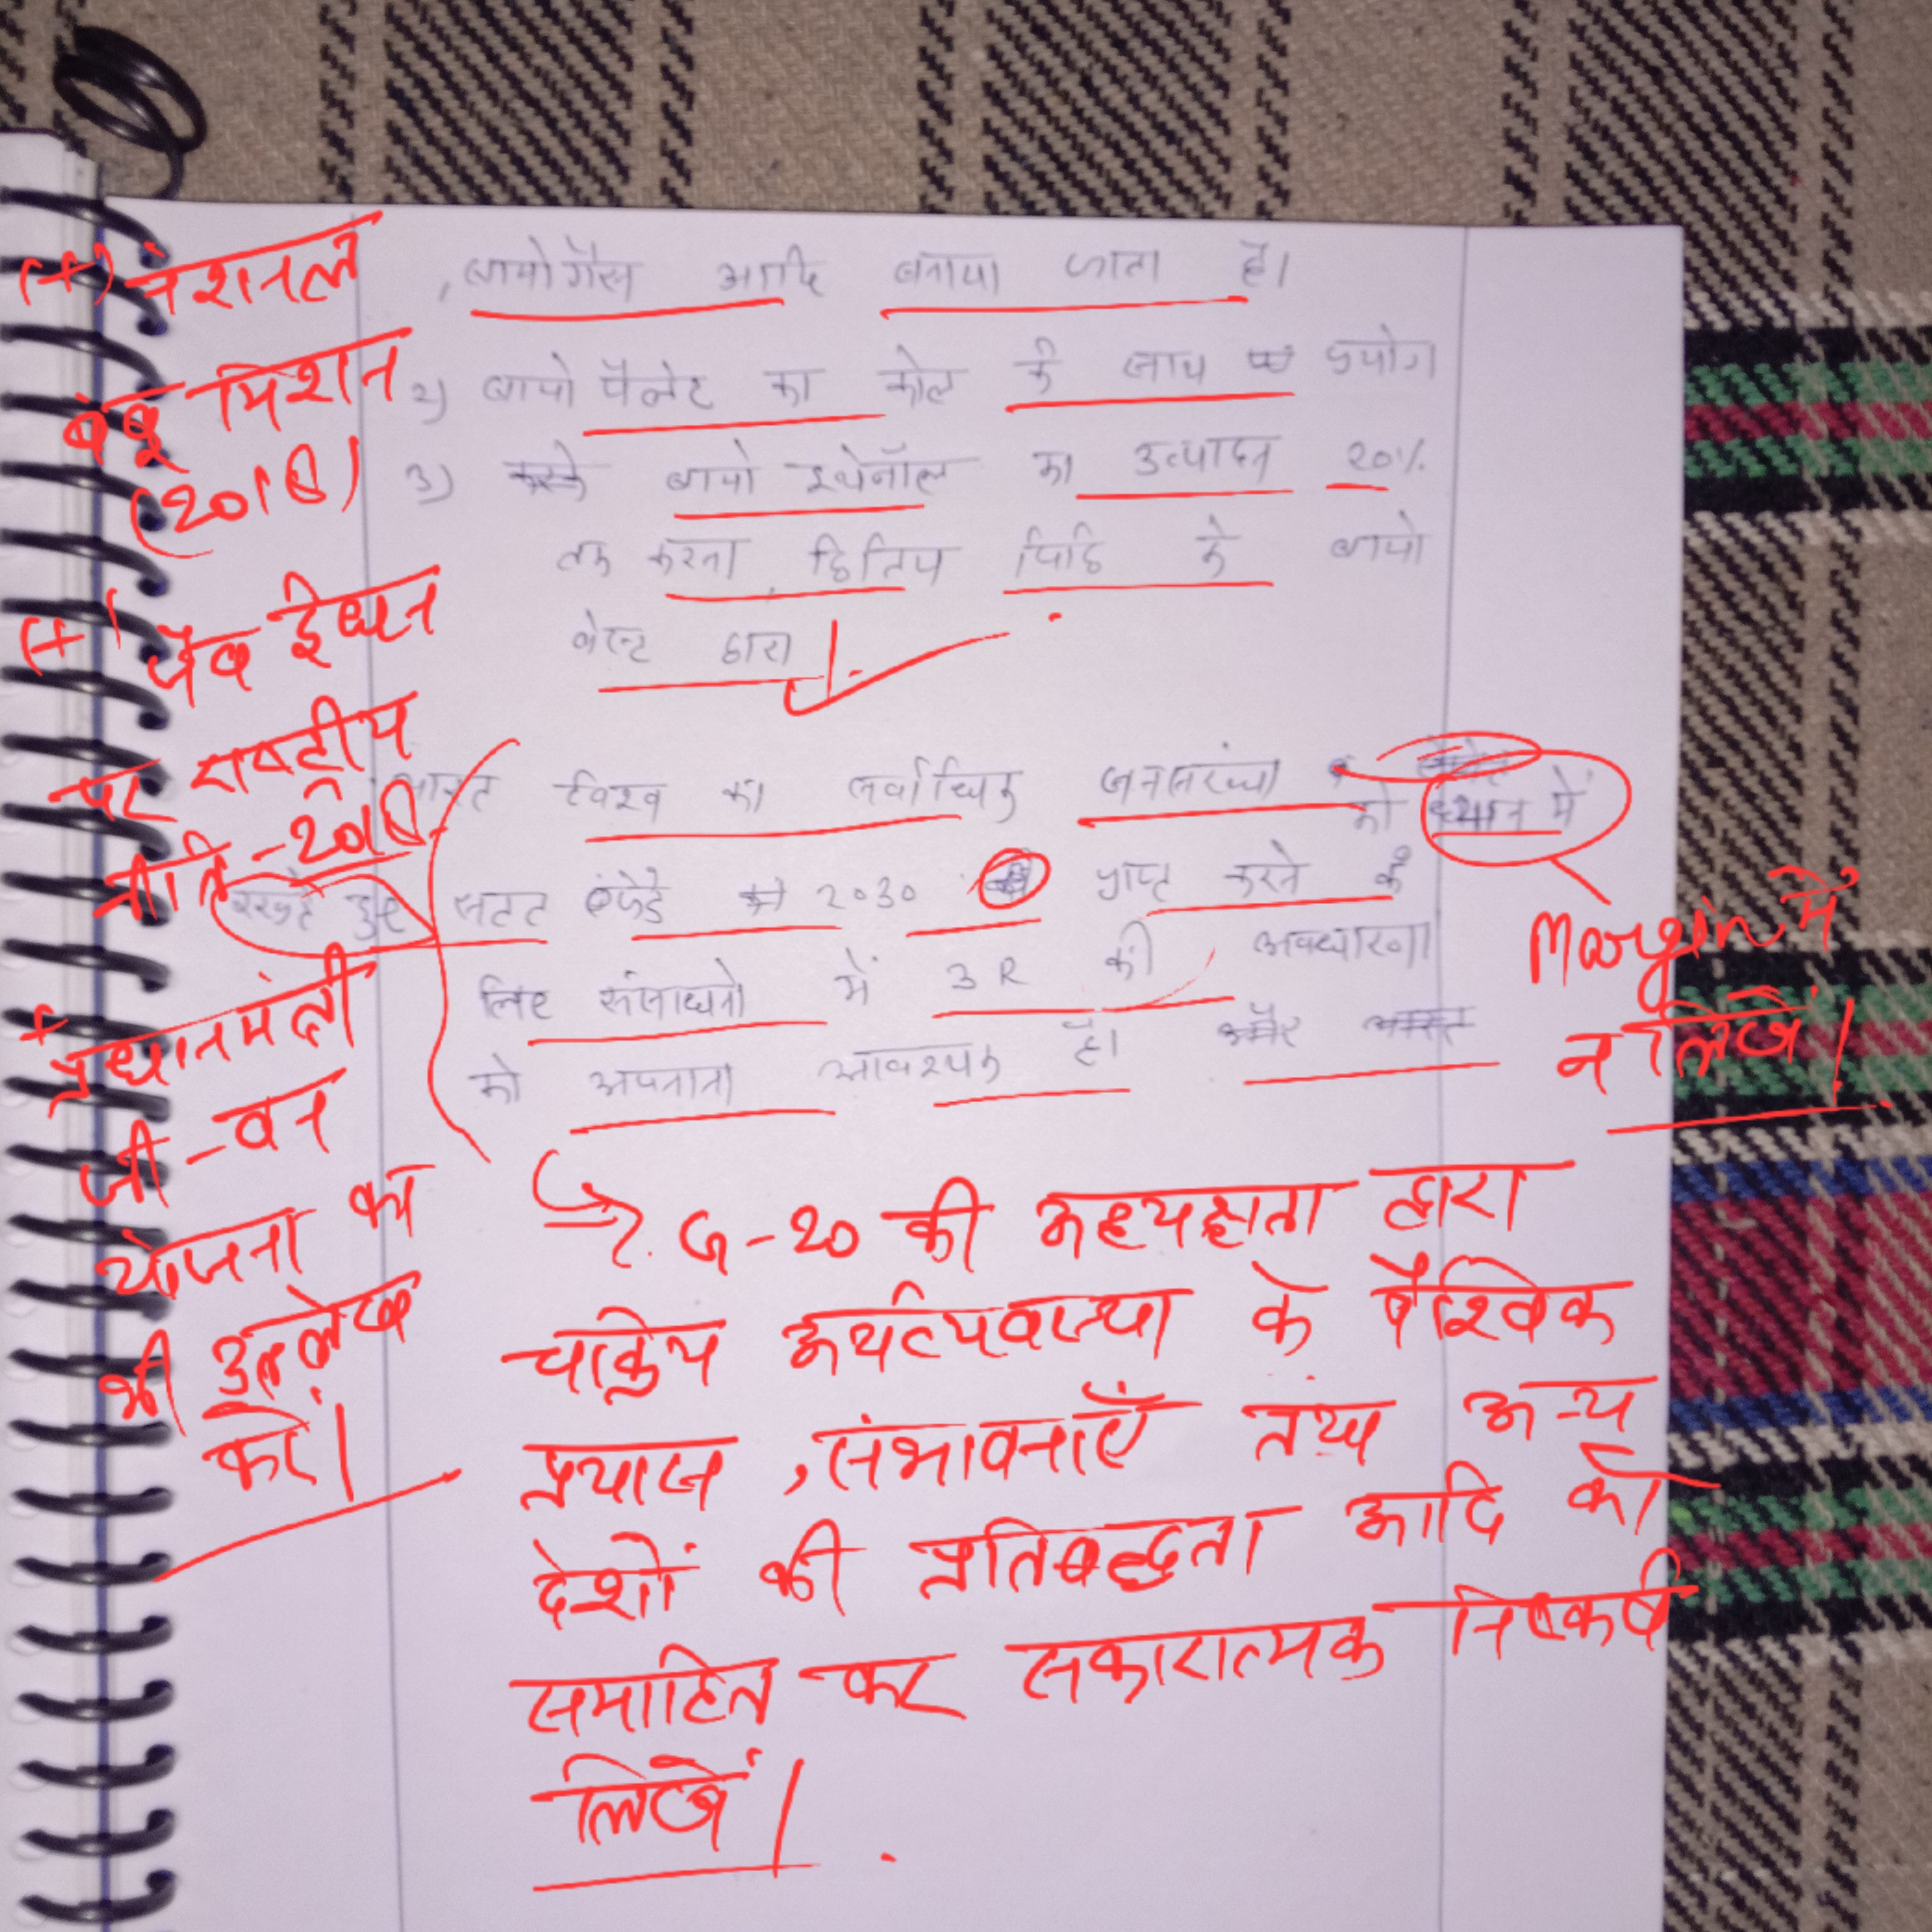 , बायोगैस आदि बनाया जाता है।
2) बायो पैलेट का कोल के साथ प्रयोग
3) बायो इथेनॉल का उत्पादन 20%
तक करना, द्वितिय पिढि के बायो
द्वारा
भारत विश्व का सर्वाधिक जनसंख्या को ध्यान में
रखते हुए सतत 2030 प्राप्त करने के
लिए संसाधनो में 3R की अवधारणा
को अपनाना आवश्यक है। और भारत
(+) नेशनल
बंबू मिशन
(2018)
(+) जैव ईंधन
पर राष्ट्रीय
नीति-2018
+ प्रधानमंत्री
जी-वन
योजना का
भी उल्लेख
करें।
Margin में
न लिखें।
G-20 की अध्यक्षता द्वारा
चक्रिय अर्थव्यवस्था के वैश्विक
प्रयास, संभावनाएँ तथा अन्य
देशों की प्रतिबद्धता आदि को
समाहित कर सकारात्मक निष्कर्ष
लिखें।